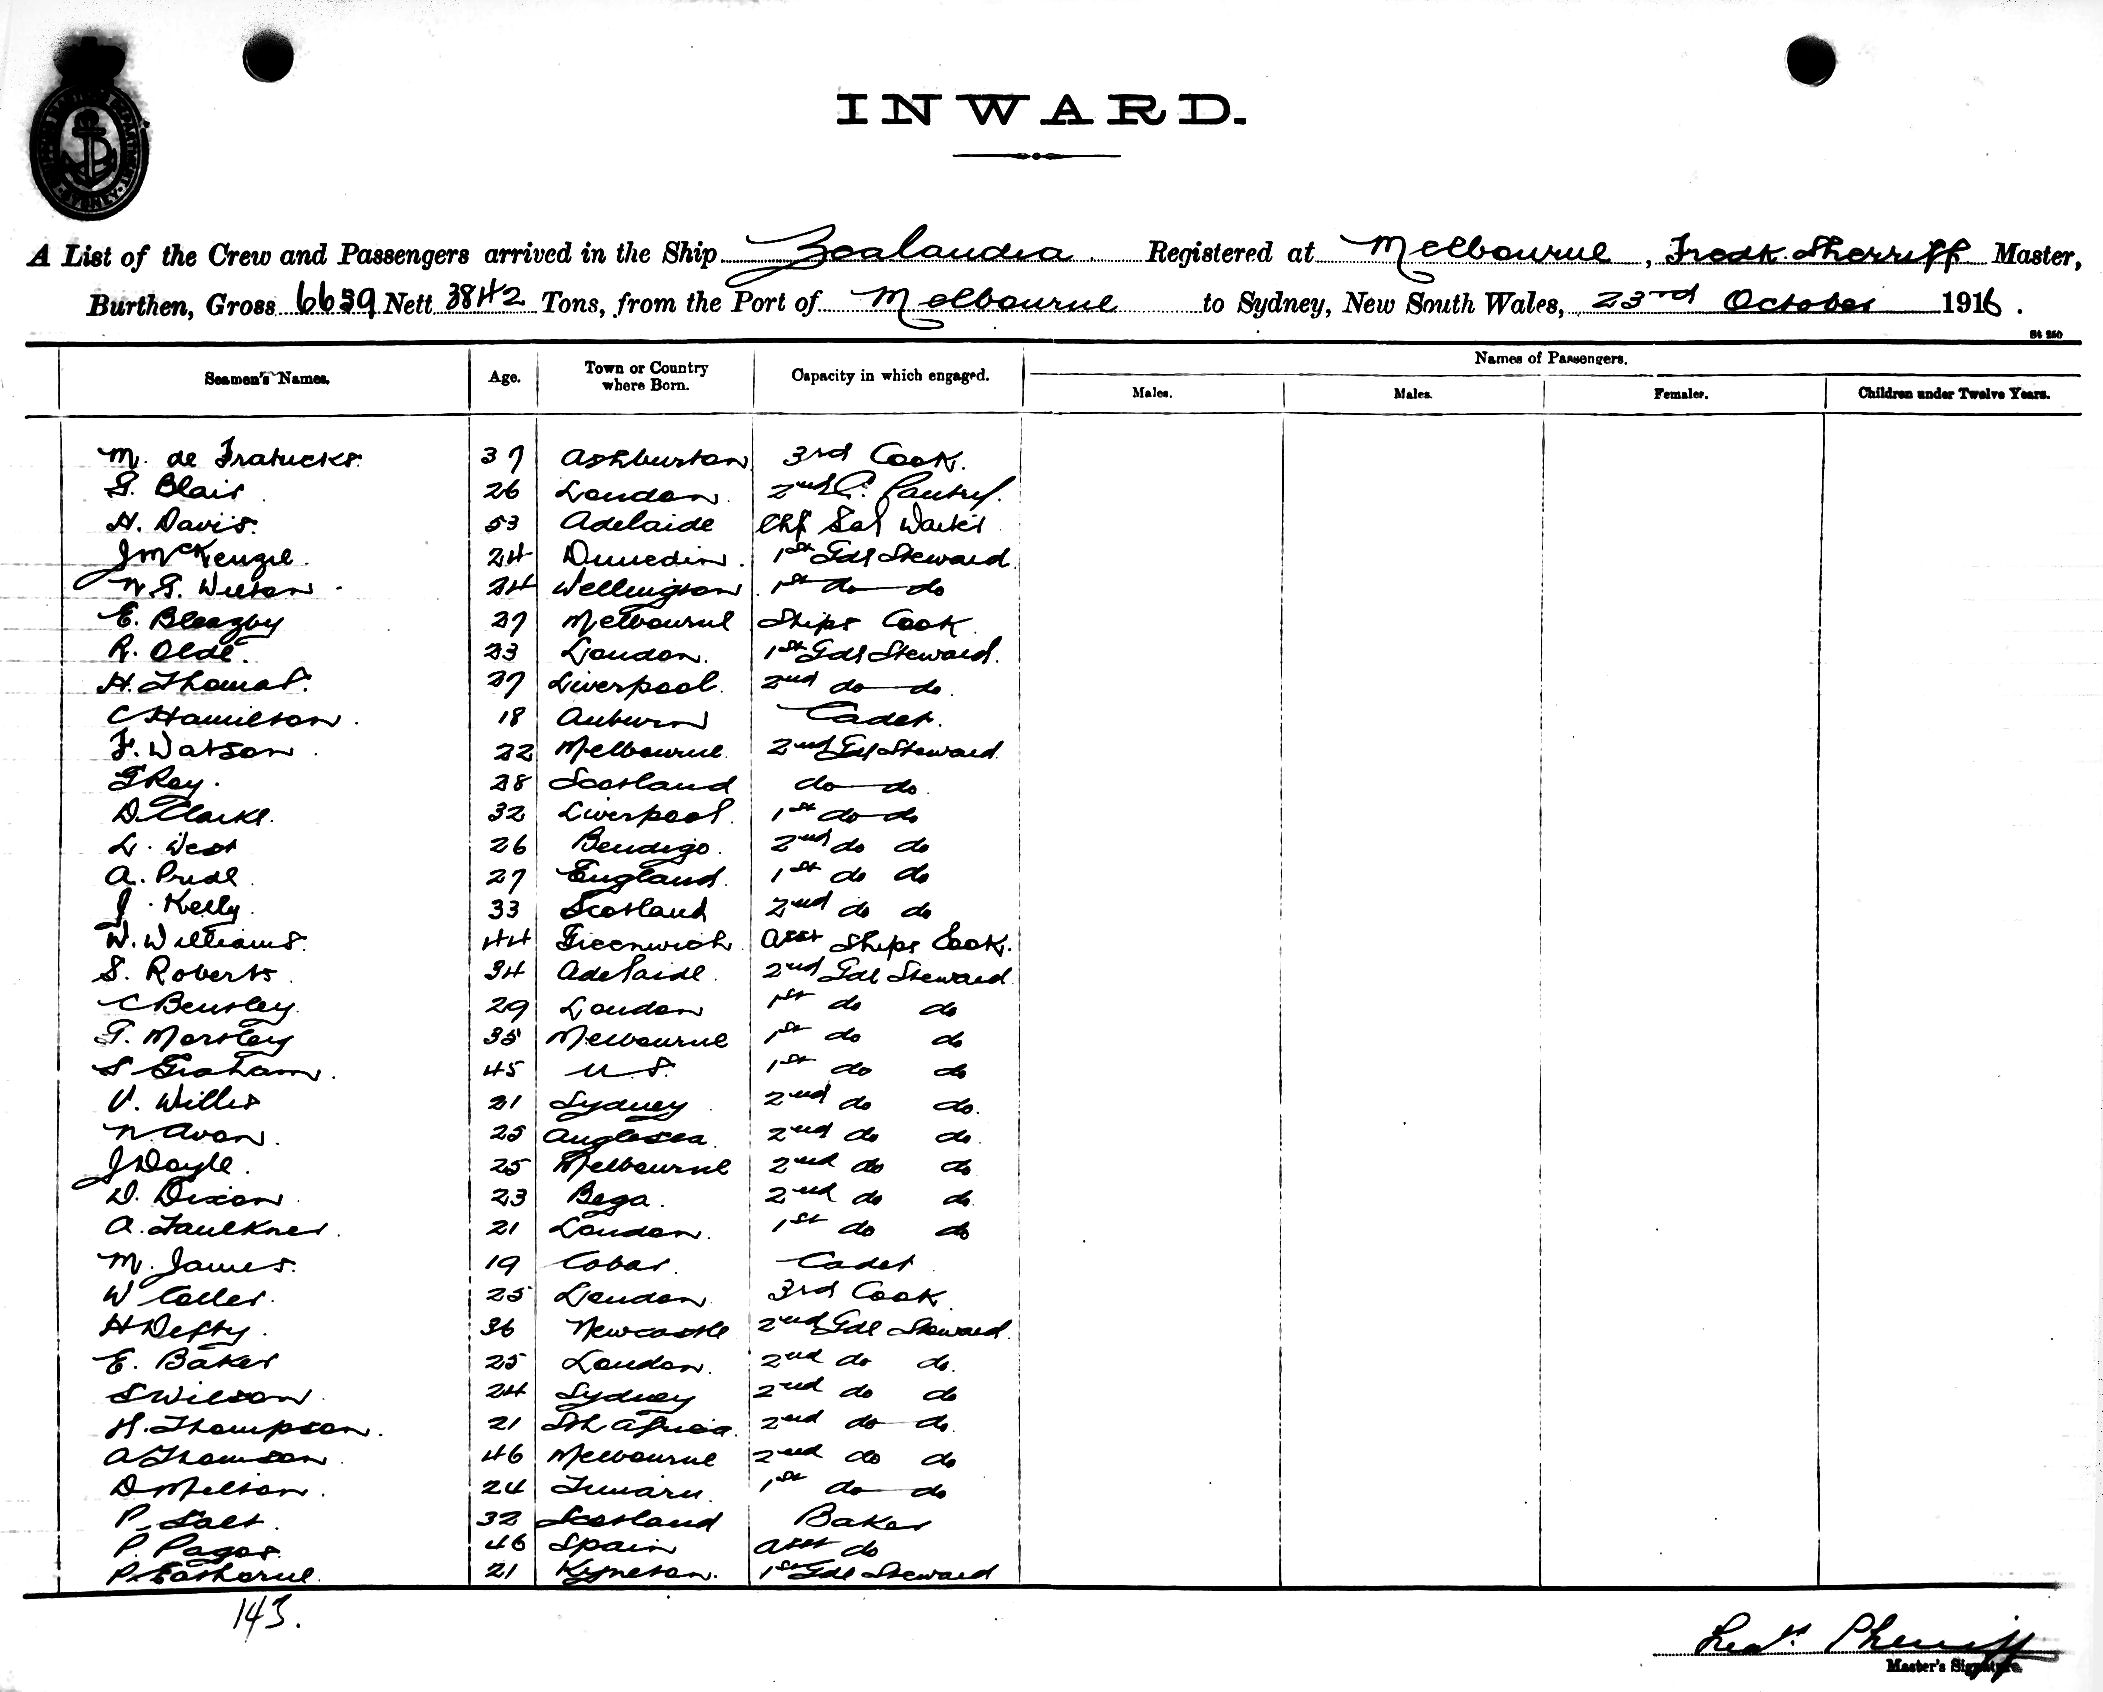 INWARD.
A List of the Crew and Passengers arrived in the Ship Zealandia Registered at Melbourne, Fredk. Sherriff Master,
Burthen, Gross 6639 Nett 3842 Tons, from the Port of Melbourne to Sydney, New South Wales, 23rd October 1916.
Seamen's Names. Age. Town or Country where Born. Capacity in which engaged. Names of Passengers.
Males. Males. Females. Children under Twelve Years.
M. de 37 Ashburton 3rd Cook.
G. Blair 26 London 2nd Pantry.
H. Davis. 53 Adelaide
J McKenzie 24 Dunedin 1st Gdl Steward
N. G. Wilson 24 Wellington 1st do do
E. Bleazby 27 Melbourne Ships Cook
R. Olde. 23 London. 1st Gdl Steward.
H. Thomas. 27 Liverpool 2nd do do.
C Hamilton. 18 Auburn Cadet.
F. Watson 22 Melbourne 2nd Gdl Steward
G Ray. 28 Scotland do do.
D. Clarke. 32 Liverpool. 1st do do
L. West 26 Bendigo. 2nd do do
A. Pride. 27 England. 1st do do
J. Kelly 33 Scotland 2nd do do
W. Williams. 44 Greenwich Asst Ships Cook.
S. Roberts. 34 Adelaide. 2nd Gdl Steward
C Bensley. 29 London 1st do do
G. Morsley 35 Melbourne 1st do do
S Graham. 45 U. S. 1st do do
V. Willis 21 Sydney 2nd do do.
N. Avon. 25 Anglesea 2nd do do.
J Doyle. 25 Melbourne 2nd do do
D. Dixon 23 Bega. 2nd do do
A. Faulkner. 21 London. 1st do do
M. James. 19 Cobar. Cadet
W Coller. 25 London 3rd Cook
H Defty. 36 Newcastle 2nd Gdl Steward.
E. Baker 25 London. 2nd do do.
S Wilson 24 Sydney 2nd do do
H. Thompson. 21 Sth Africa 2nd do do.
A Thomson 46 Melbourne 2nd do do
D Milton. 24 Timaru. 1st do do
P. Salt. 32 Scotland Baker
P. Pages 46 Spain Asst do
P. 21 Kyneton. 1st Gdl Steward
143.
Fredk. Sherriff
Master's Signature.